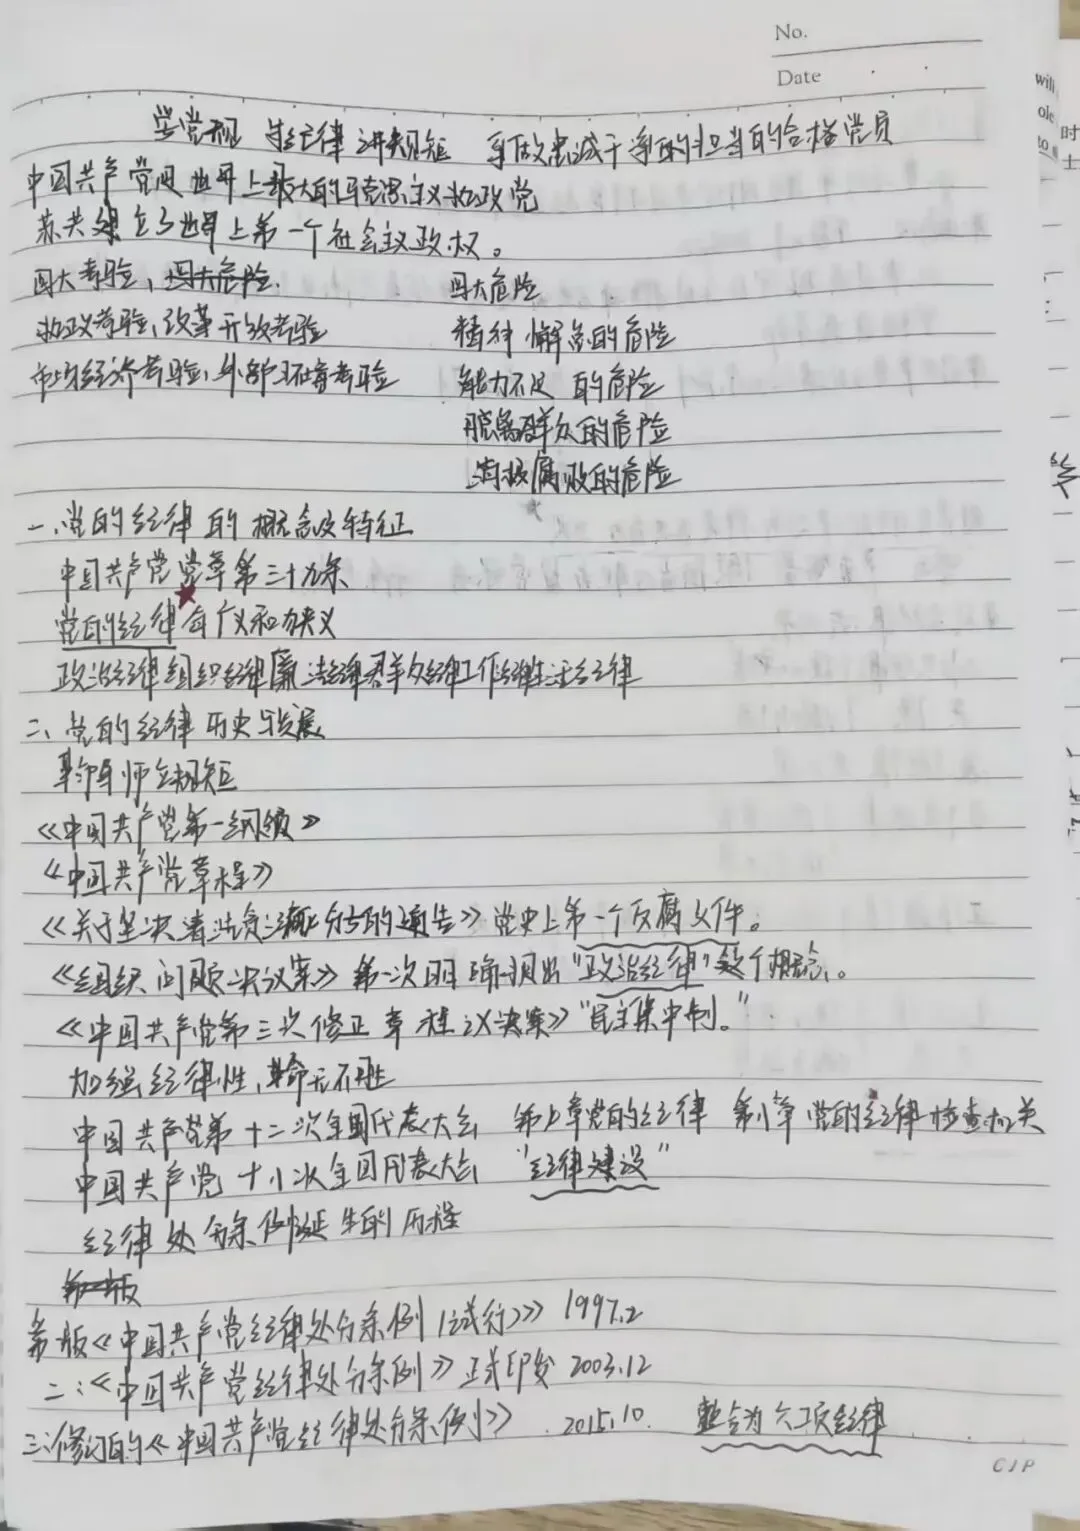 No.
Date
学党规 守纪律 讲规矩 争做忠诚干净的担当的合格党员
中国共产党是世界上最大的马克思主义执政党
苏共建立了世界上第一个社会主义政权。
四大考验、四大危险. 四大危险
执政考验、改革开放考验 精神懈怠的危险
市场经济考验、外部环境考验 能力不足的危险
脱离群众的危险
消极腐败的危险
一、党的纪律的概念及特征
中国共产党党章第三十九条
党的纪律有广义和狭义
政治纪律组织纪律廉洁纪律群众纪律工作纪律生活纪律
二、党的纪律历史与发展
革命导师立规矩
《中国共产党第一纲领》
《中国共产党章程》
《关于坚决清洗贪污腐化分子的通告》党史上第一个反腐文件。
《组织问题决议案》第一次明确提出"政治纪律"这个概念。
《中国共产党第三次修正章程议决案》"民主集中制。"
加强纪律性,革命无不胜
中国共产党第十二次全国代表大会 第七章党的纪律 第八章党的纪律检查机关
中国共产党十八次全国代表大会 "纪律建设"
纪律处分条例诞生的历程
第一版
第一版《中国共产党纪律处分条例(试行)》 1997.2
二:《中国共产党纪律处分条例》正式印发 2003.12
三:修订的《中国共产党纪律处分条例》 2015.10. 整合为六项纪律
CJP
will
ole
to
时
士